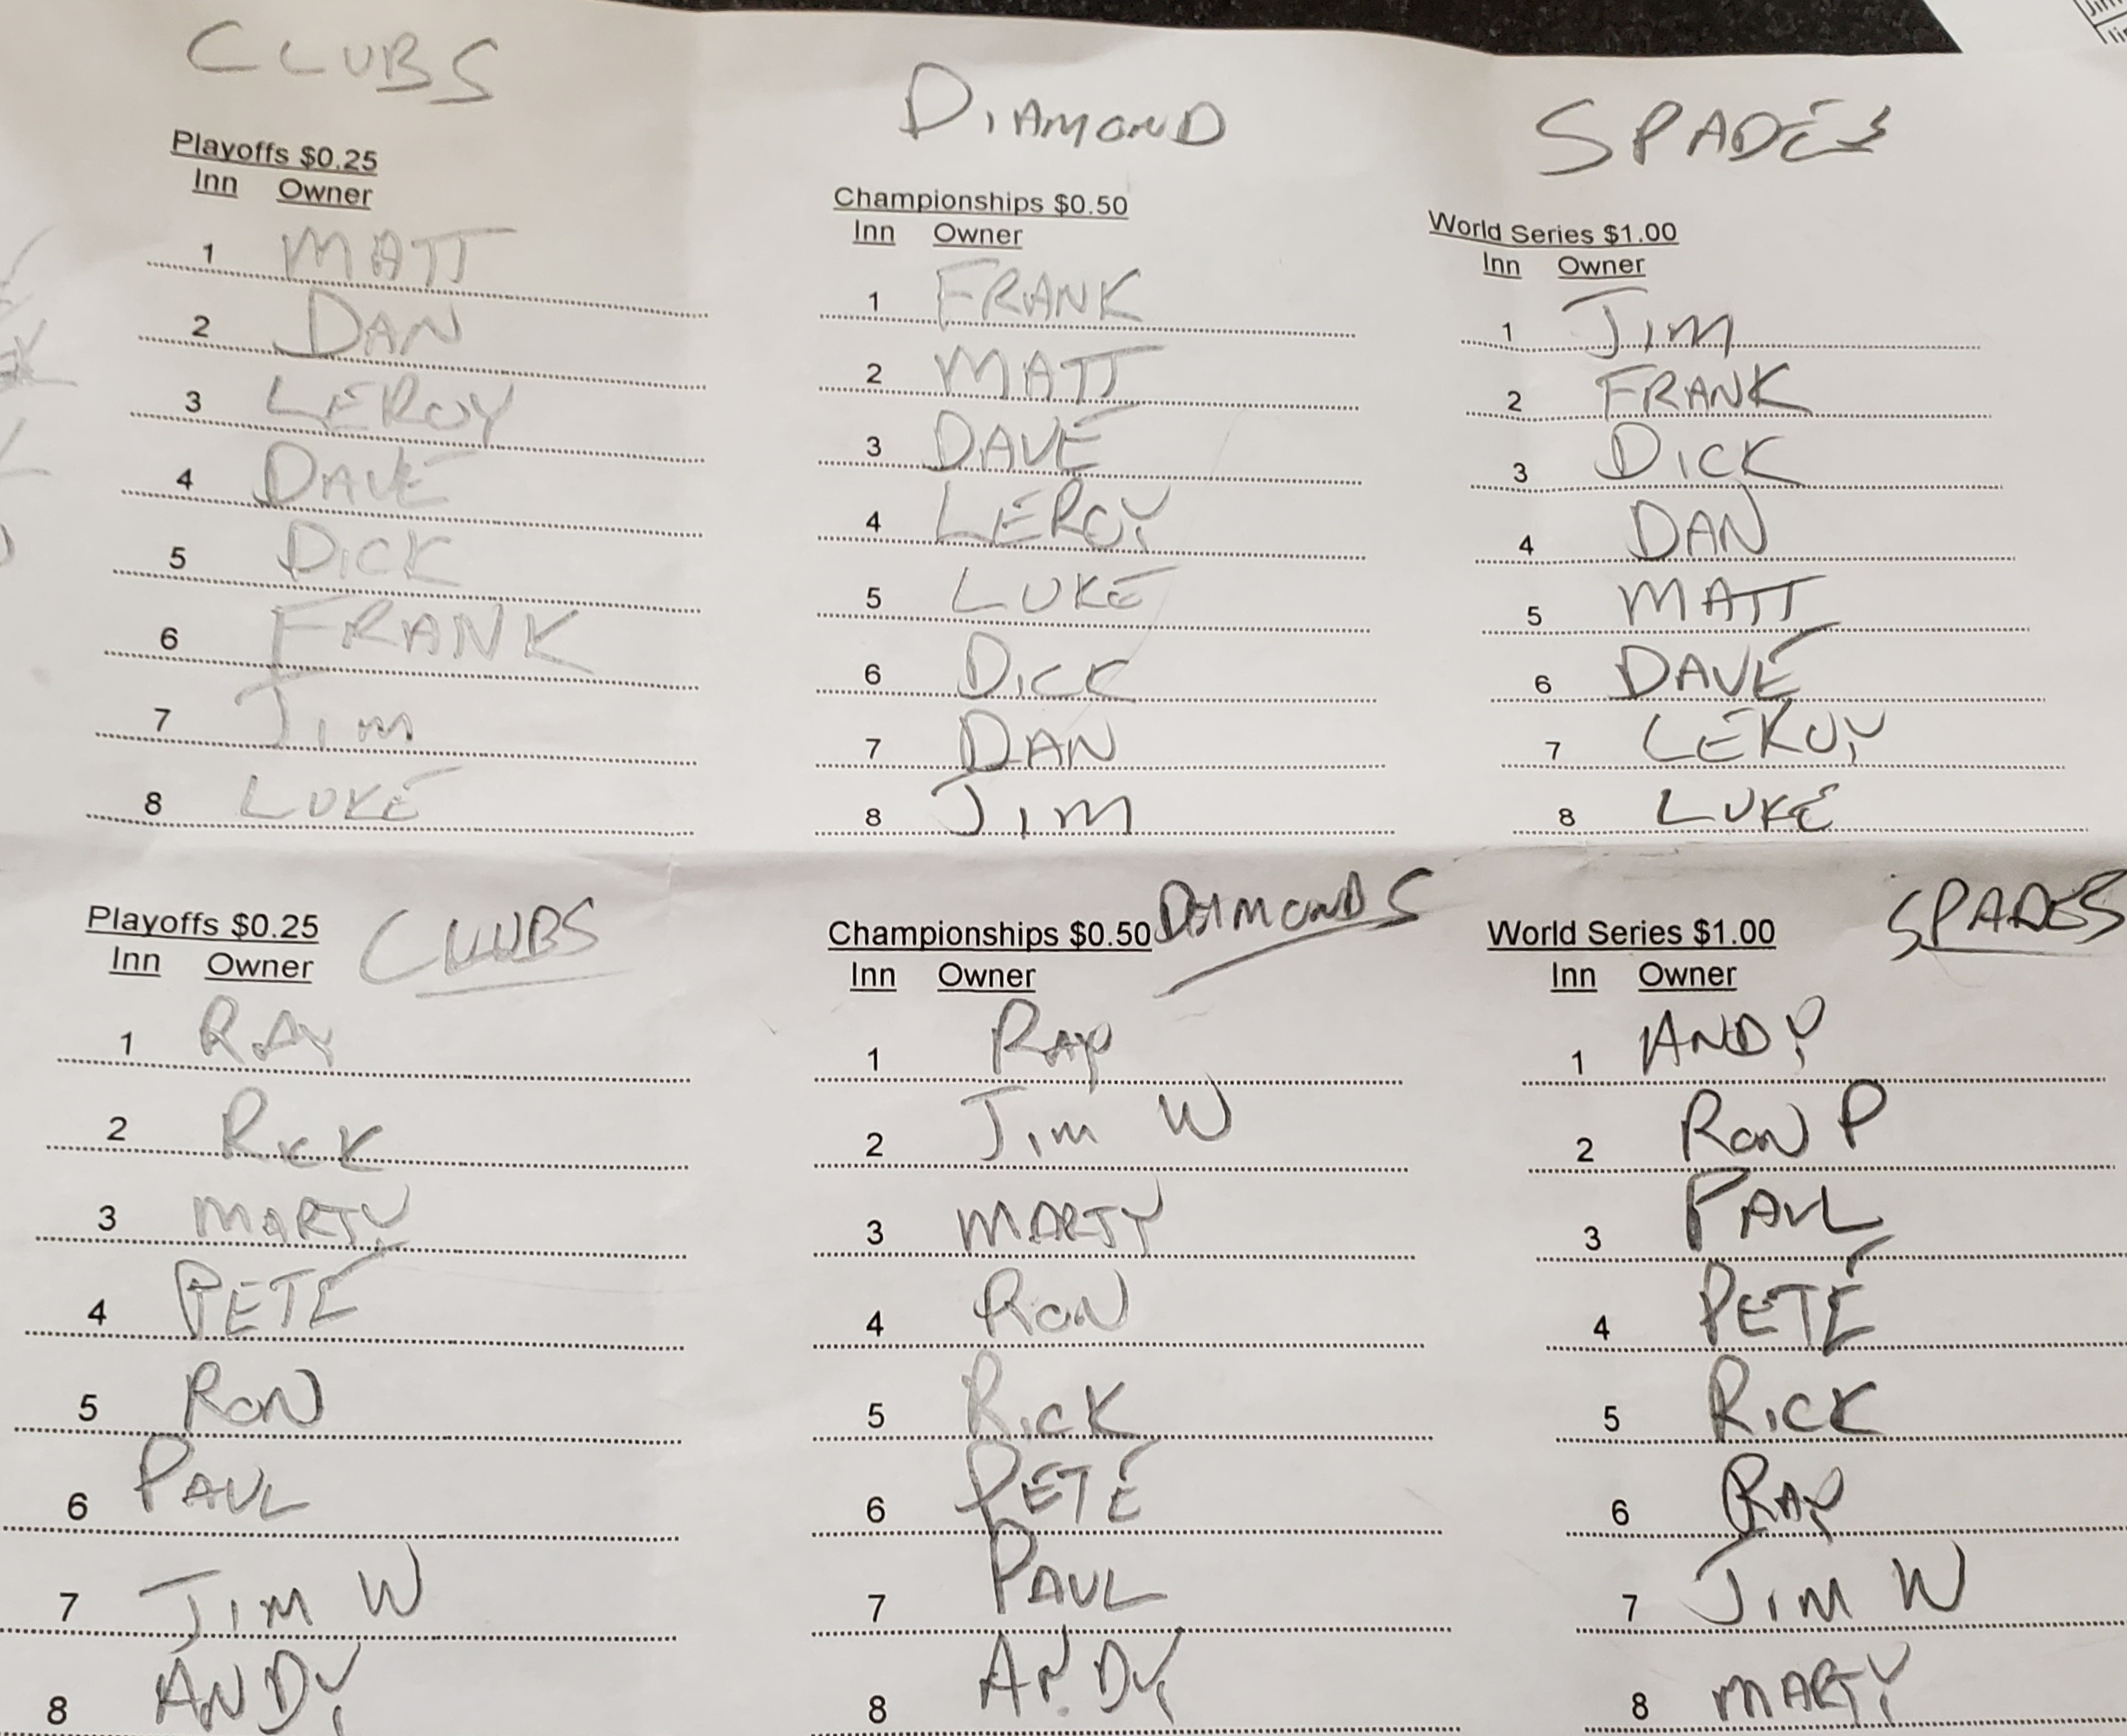 CLUBS
Playoffs $0.25
Inn Owner
1 MATT
2 DAN
3 LEROY
4 DAVE
5 DICK
6 FRANK
7 Jim
8 LUKE
DIAMOND
Championships $0.50
Inn Owner
1 FRANK
2 MATT
3 DAVE
4 LEROY
5 LUKE
6 DICK
7 DAN
8 Jim
SPADES
World Series $1.00
Inn Owner
1 Jim
2 FRANK
3 DICK
4 DAN
5 MATT
6 DAVE
7 LEROY
8 LUKE
Playoffs $0.25 CLUBS
Inn Owner
1 RAY
2 RICK
3 MARTY
4 PETE
5 RON
6 PAUL
7 JIM W
8 ANDY
Championships $0.50 DIAMONDS
Inn Owner
1 RAY
2 Jim W
3 MARTY
4 RON
5 RICK
6 PETE
7 PAUL
8 ANDY
World Series $1.00 SPADES
Inn Owner
1 ANDY
2 RON P
3 PAUL
4 PETE
5 RICK
6 RAY
7 JIM W
8 MARTY